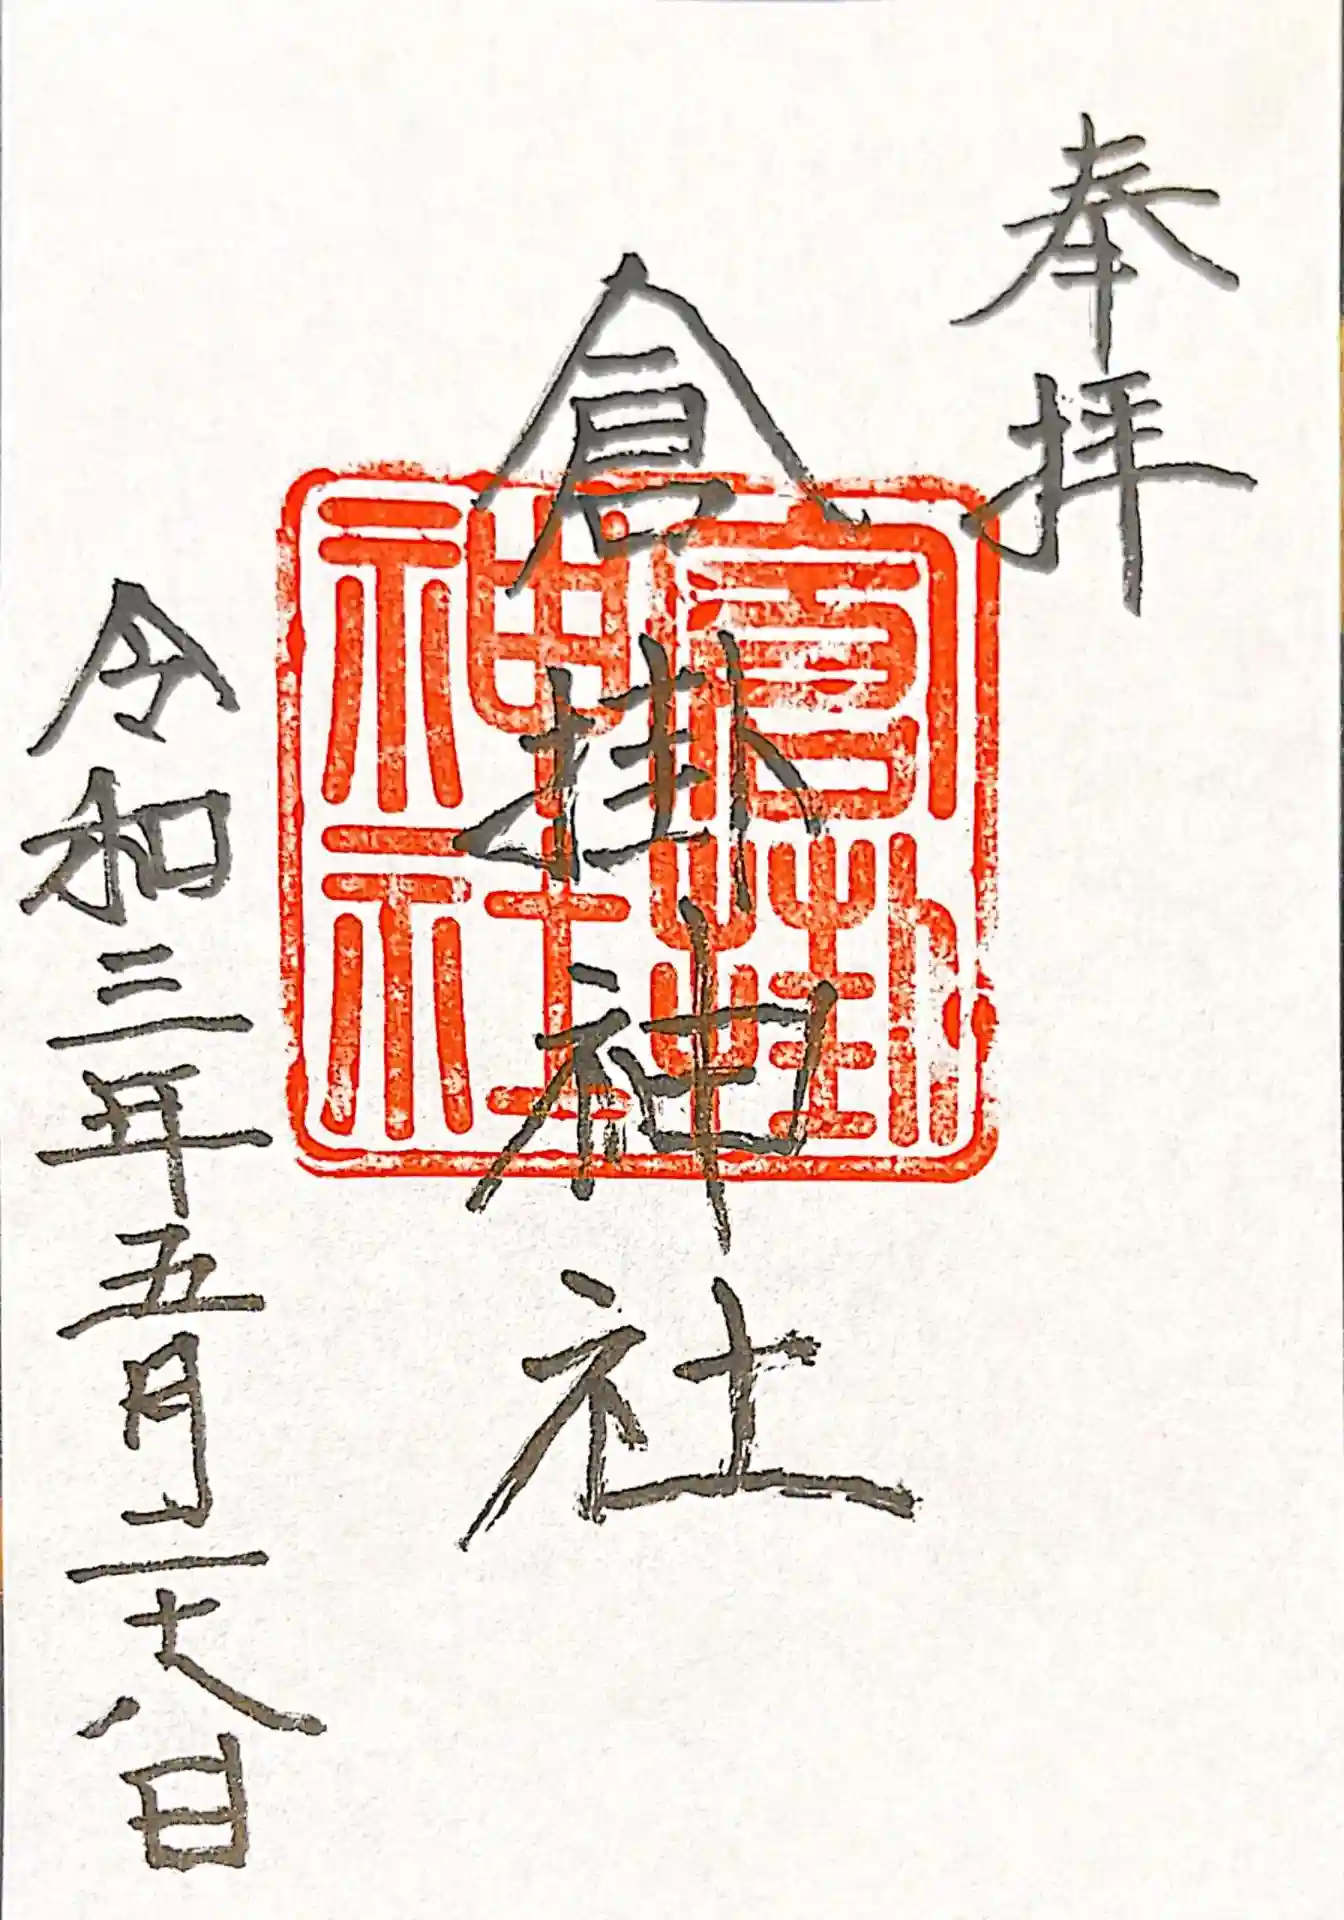 奉拝
倉掛神社
倉掛神社
令和三年五月二十八日